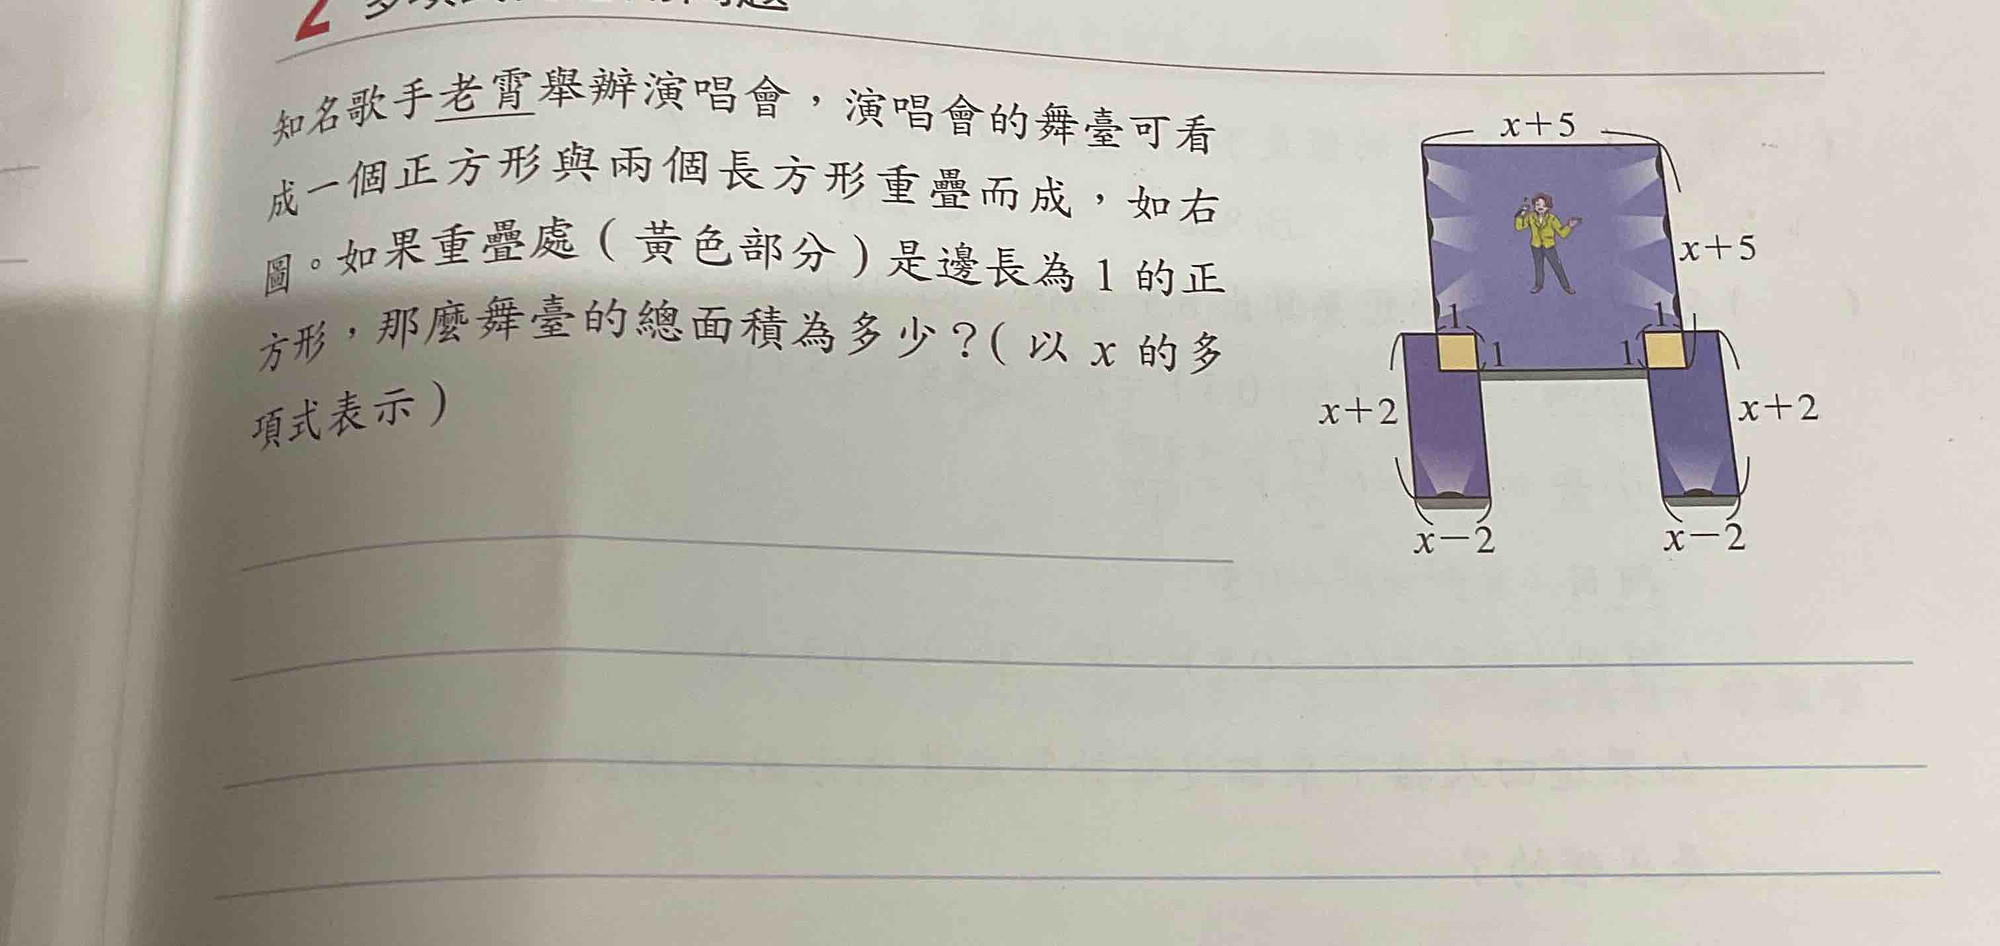 2
知名歌手老霄舉辦演唱會，演唱會的舞臺可看
成一個正方形與兩個長方形重疊而成，如右
圖。如果重疊處（黃色部分）是邊長為1的正
方形，那麼舞臺的總面積為多少？（以 x 的多
項式表示）
x＋5
x＋5
1
1
1
1
x＋2
x＋2
x－2
x－2